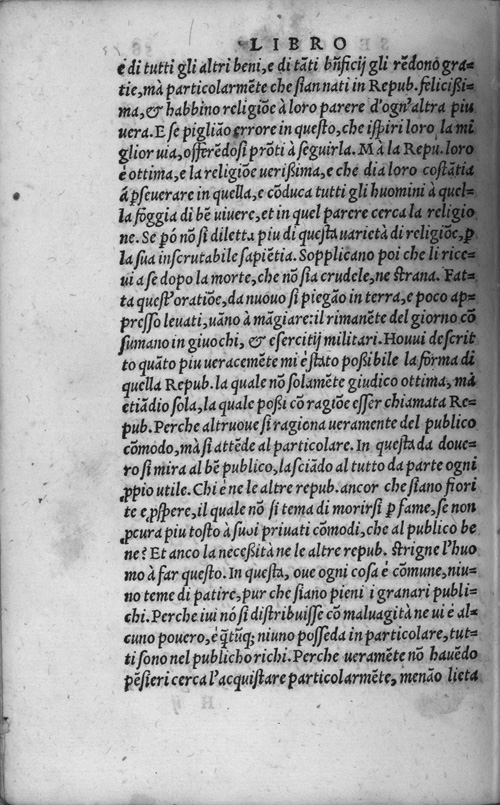 LIBRO
e di tutti gli altri beni, e di tãti bñficij gli rẽdono gra=
tie, mà particolarmẽte che siannati in Repub. felicißi=
ma, & habbino religiõe à loro parere d'ogn'altra piu
uera. E se pigliãо errore in questo, che ispiri loro la mi
glior uia, offerẽdosi prõti à seguirla. Mà la Repu. loro
è ottima, e la religiõe uerißima, e che dia loro costãtia
á ꝑseuerare in quella, e cõduca tutti gli huomini à quel=
la fõggia di bẽ uiuere, et in quel parere cerca la religio
ne. Se ꝑó nõ si diletta piu di questa uarietà di religiõe, ꝑ
la sua inscrutabile sapiẽtia. Sopplicano poi che li rice=
ui a se dopo la morte, che nõ sia crudele, ne strana. Fat=
ta quest'oratiõe, da nuouo si piegão in terra, e poco ap=
presso leuati, uãno à mãgiare: il rimanẽte del giorno cõ
sumano in giuochi, & esercitij militari. Houui descrit
to quãto piu ueracemẽte mi è stato poßibile la fòrma di
quella Repub. la quale nõ solamẽte giudico ottima, mà
etiãdio sola, la quale poßi cõ ragiõe esser chiamata Re=
pub. Perche altruoue si ragiona ueramente del publico
cõmodo, mà si attẽde al particolare. In questa da doue=
ro si mira al bẽ publico, lasciãdo al tutto da parte ogni
ꝓpio utile. Chi è ne le altre repub. ancor che siano fiori
te e ꝓspere, il quale nõ si tema di morirsi ꝑ fame, se non
ꝓcura piu tosto à suoi priuati cõmodi, che al publico be
ne? Et anco la neceßità ne le altre repub. strigne l'huo
mo à far questo. In questa, oue ogni cosa è cõmune, niu=
no teme di patire, pur che siano pieni i granari publi=
chi. Perche iui nó si distribuisse cõ maluagità ne ui è al=
cuno pouero, è q̃tũq; niuno posseda in particolare, tut=
ti sono nel publicho richi. Perche ueramẽte nõ hauẽdo
pẽsieri cerca l'acquistare particolarmẽte, menão lieta